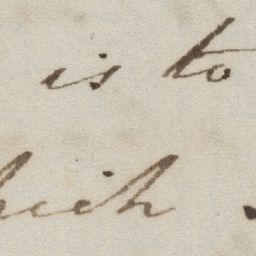 is to
hich